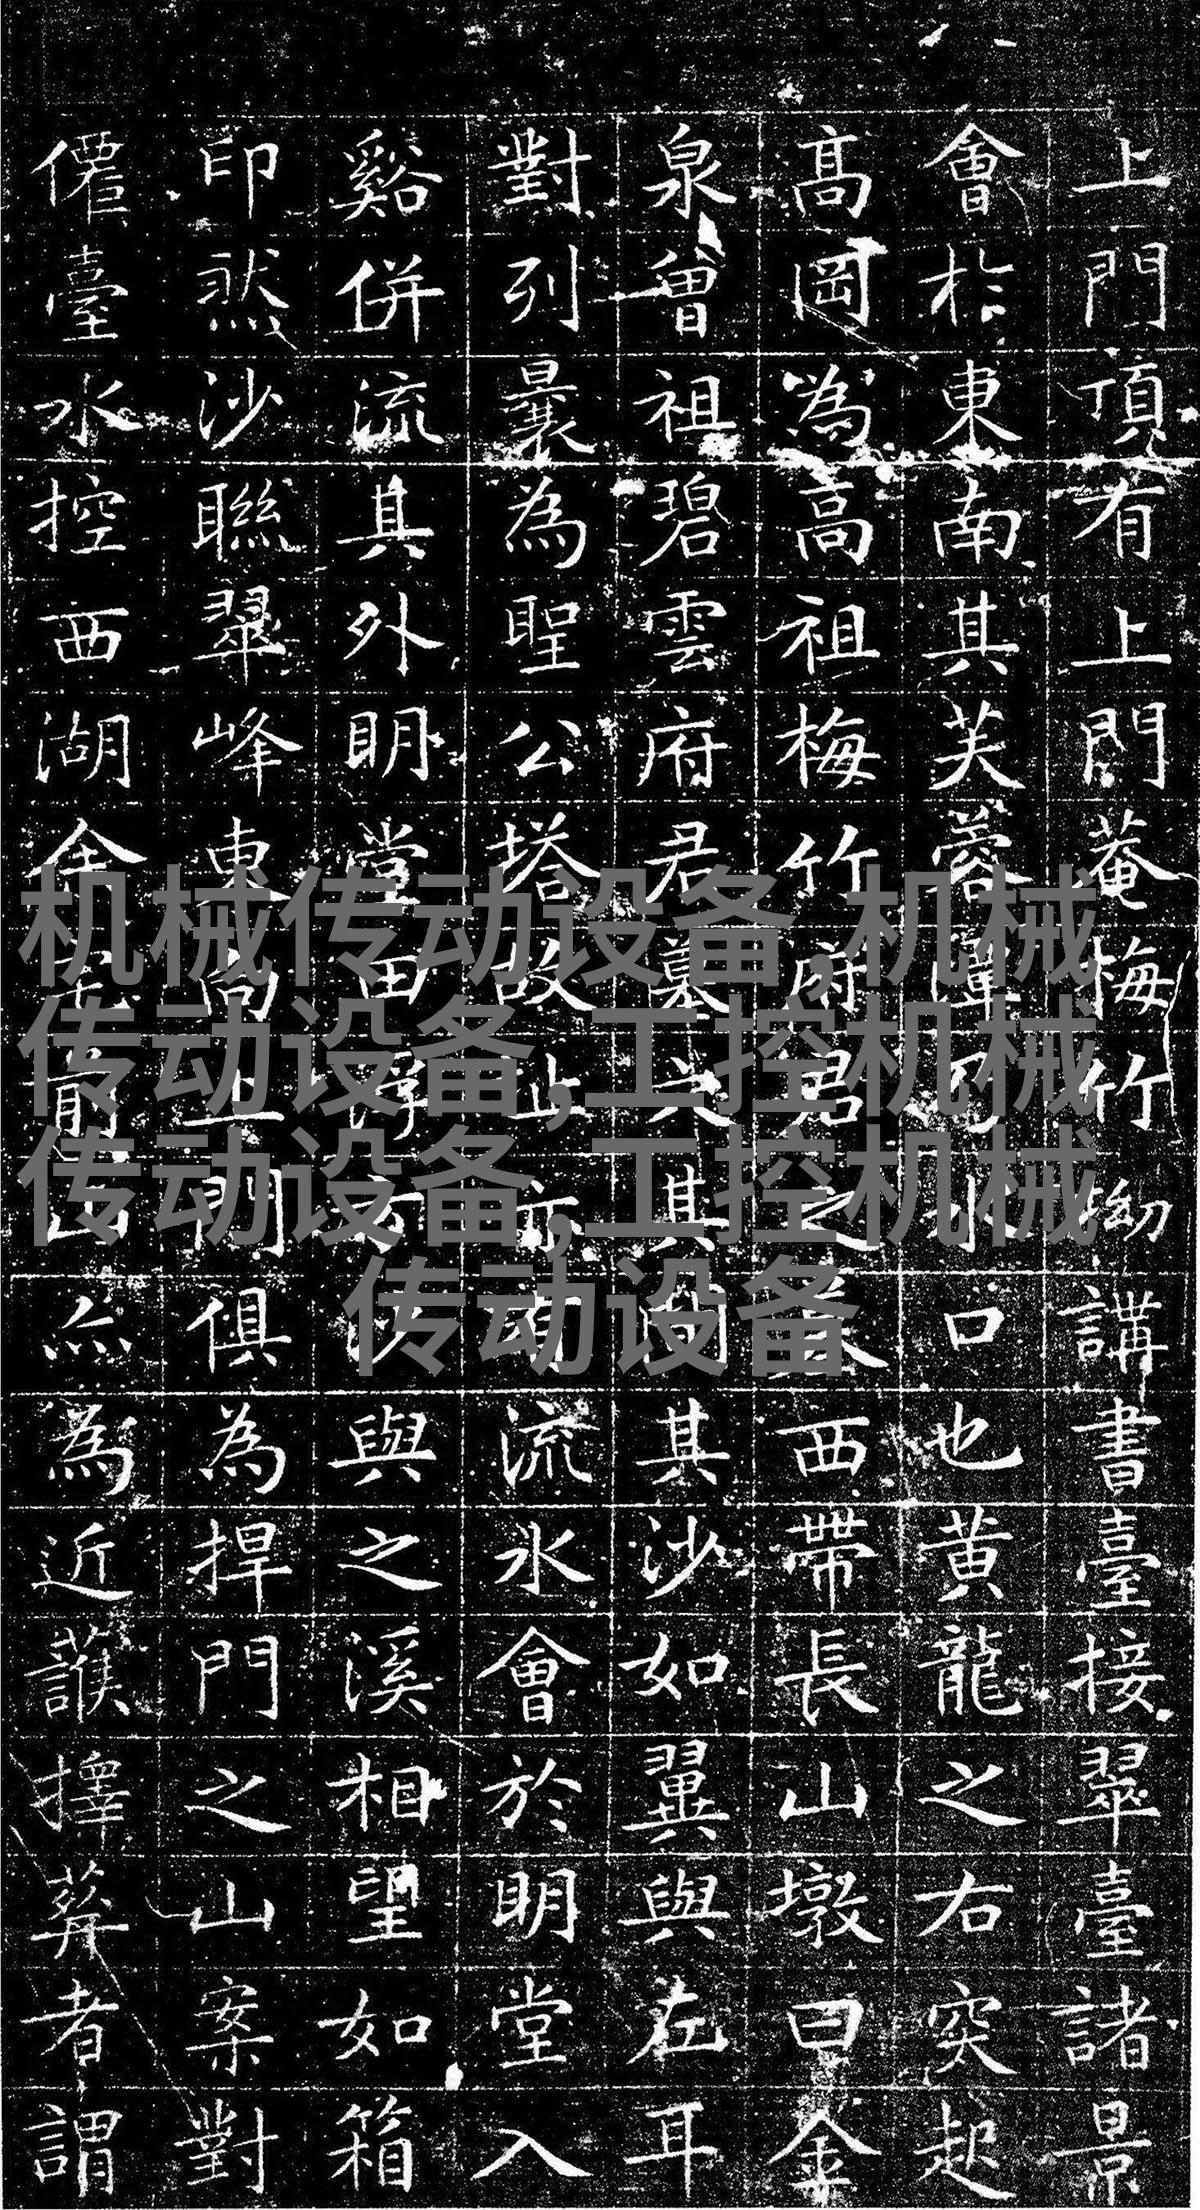 上門頂有上門菴梅竹坳講書臺接翠臺諸景
會於東南其芙蓉嶂水口也黄龍之右突起
高岡為高祖梅竹府君之西帶長山墩曰金
泉曾祖碧雲府君墓其間其沙如翼與左耳
對列曩為聖公塔故址亦有流水會於明堂入
谿併流其外明堂田浮沙與之溪相望如箱
印然沙聯翠峰東向上門俱為捍門之山案對
僊臺水控西湖余前山亦為近護擇葬者謂
机械传动设备,机械
传动设备,工控机械
传动设备,工控机械
传动设备